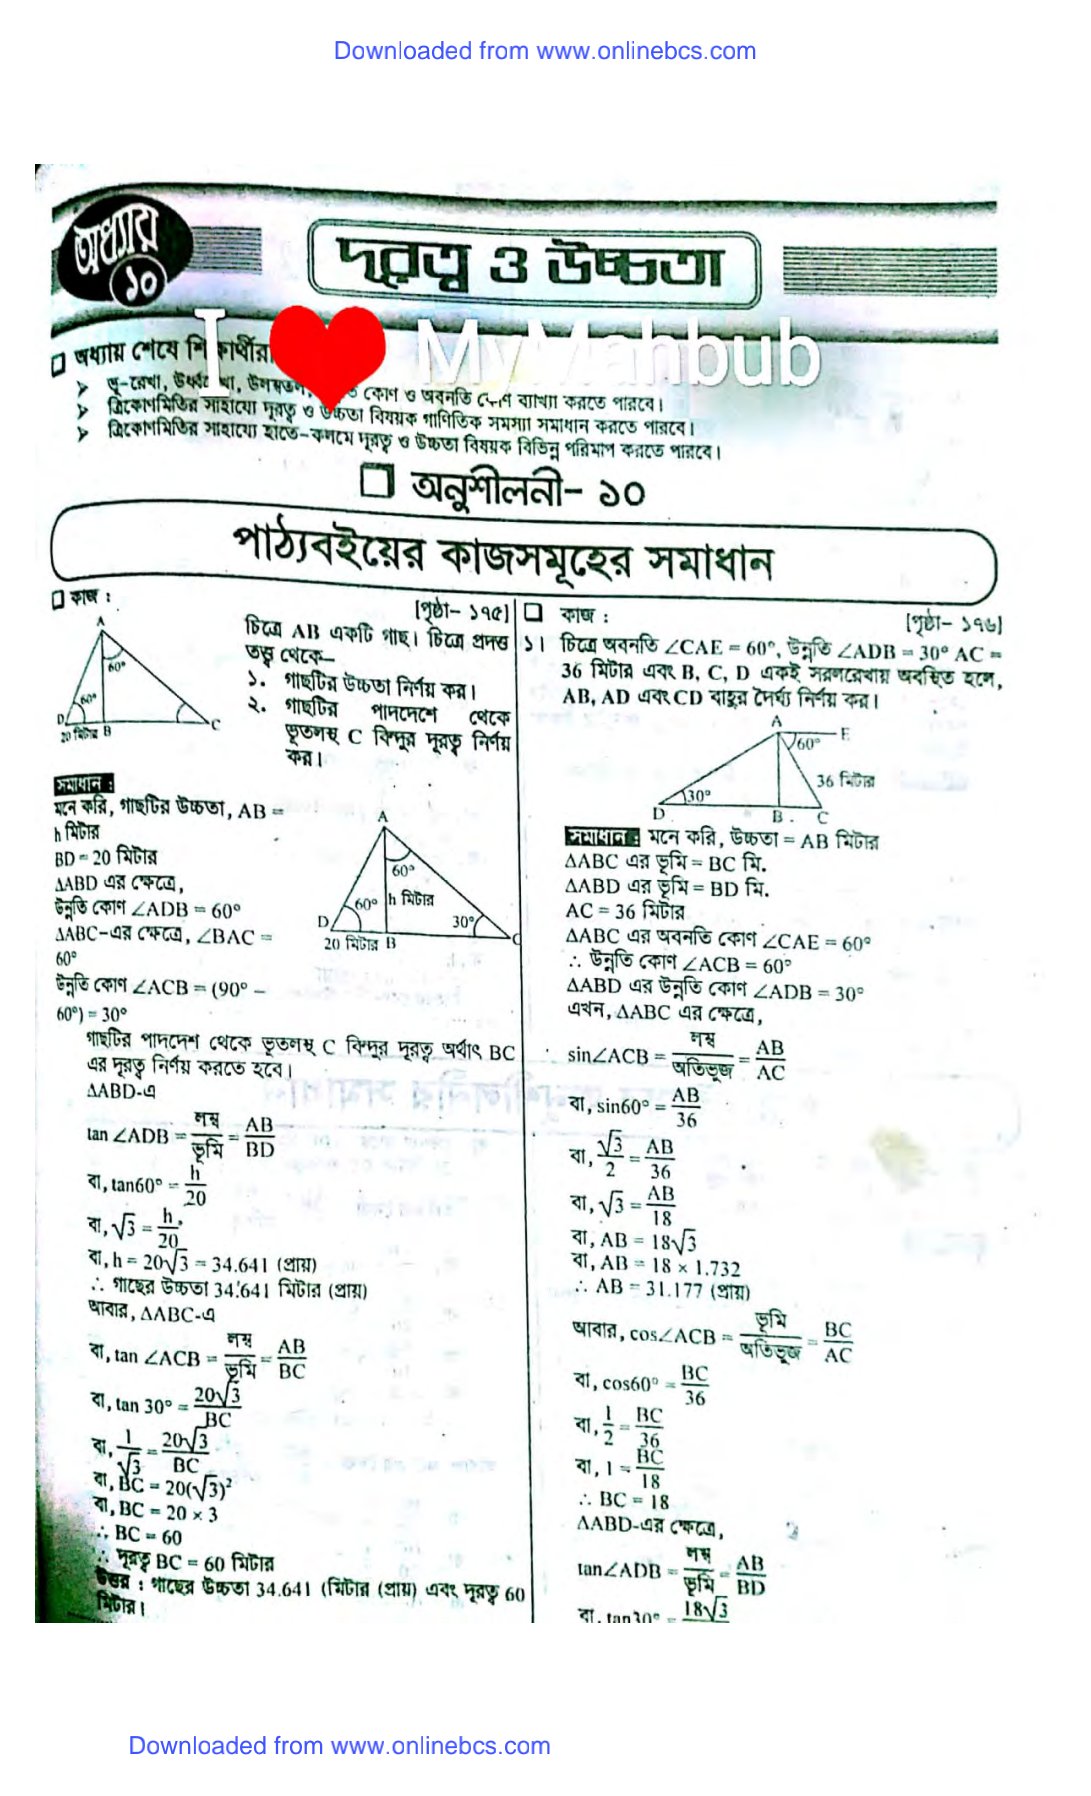 Downloaded from www.onlinebcs.com
অধ্যায়
১০
দূরত্ব ও উচ্চতা
I MyMahbub
❑ অধ্যায় শেষে শিক্ষার্থীরা
➤ ভূ-রেখা, উর্ধ্বরেখা, উলম্বতল, কোণ ও অবনতি কোণ ব্যাখ্যা করতে পারবে।
➤ ত্রিকোণমিতির সাহায্যে দূরত্ব ও উচ্চতা বিষয়ক গাণিতিক সমস্যা সমাধান করতে পারবে।
➤ ত্রিকোণমিতির সাহায্যে হাতে-কলমে দূরত্ব ও উচ্চতা বিষয়ক বিভিন্ন পরিমাপ করতে পারবে।
❑ অনুশীলনী- ১০
পাঠ্যবইয়ের কাজসমূহের সমাধান
❑ কাজ :
[পৃষ্ঠা- ১৭৫]
A
60°
60°
D
20 মিটার B
C
চিত্রে AB একটি গাছ। চিত্রে প্রদত্ত
তত্ত্ব থেকে–
১. গাছটির উচ্চতা নির্ণয় কর।
২. গাছটির পাদদেশে থেকে
ভূতলস্থ C বিন্দুর দূরত্ব নির্ণয়
কর।
সমাধান :
মনে করি, গাছটির উচ্চতা, AB =
h মিটার
BD = 20 মিটার
ΔABD এর ক্ষেত্রে,
উন্নতি কোণ ∠ADB = 60°
ΔABC-এর ক্ষেত্রে, ∠BAC =
60°
উন্নতি কোণ ∠ACB = (90° –
60°) = 30°
A
60°
60° h মিটার
30°
D
20 মিটার B
C
গাছটির পাদদেশ থেকে ভূতলস্থ C বিন্দুর দূরত্ব অর্থাৎ BC
এর দূরত্ব নির্ণয় করতে হবে।
ΔABD-এ
tan ∠ADB = লম্ব/ভূমি = AB/BD
বা, tan60° = h/20
বা, √3 = h/20
বা, h = 20√3 = 34.641 (প্রায়)
∴ গাছের উচ্চতা 34.641 মিটার (প্রায়)
আবার, ΔABC-এ
বা, tan ∠ACB = লম্ব/ভূমি = AB/BC
বা, tan 30° = 20√3/BC
বা, 1/√3 = 20√3/BC
বা, BC = 20(√3)²
বা, BC = 20 × 3
∴ BC = 60
∴ দূরত্ব BC = 60 মিটার
উত্তর : গাছের উচ্চতা 34.641 (মিটার (প্রায়) এবং দূরত্ব 60
মিটার।
❑ কাজ :
[পৃষ্ঠা- ১৭৬]
১। চিত্রে অবনতি ∠CAE = 60°, উন্নতি ∠ADB = 30° AC =
36 মিটার এবং B, C, D একই সরলরেখায় অবস্থিত হলে,
AB, AD এবং CD বাহুর দৈর্ঘ্য নির্ণয় কর।
A
E
60°
36 মিটার
30°
D
B
C
সমাধান : মনে করি, উচ্চতা = AB মিটার
ΔABC এর ভূমি = BC মি.
ΔABD এর ভূমি = BD মি.
AC = 36 মিটার
ΔABC এর অবনতি কোণ ∠CAE = 60°
∴ উন্নতি কোণ ∠ACB = 60°
ΔABD এর উন্নতি কোণ ∠ADB = 30°
এখন, ΔABC এর ক্ষেত্রে,
sin∠ACB = লম্ব/অতিভুজ = AB/AC
বা, sin60° = AB/36
বা, √3/2 = AB/36
বা, √3 = AB/18
বা, AB = 18√3
বা, AB = 18 × 1.732
∴ AB = 31.177 (প্রায়)
আবার, cos∠ACB = ভূমি/অতিভুজ = BC/AC
বা, cos60° = BC/36
বা, 1/2 = BC/36
বা, 1 = BC/18
∴ BC = 18
ΔABD-এর ক্ষেত্রে,
tan∠ADB = লম্ব/ভূমি = AB/BD
বা, tan30° = 18√3
Downloaded from www.onlinebcs.com